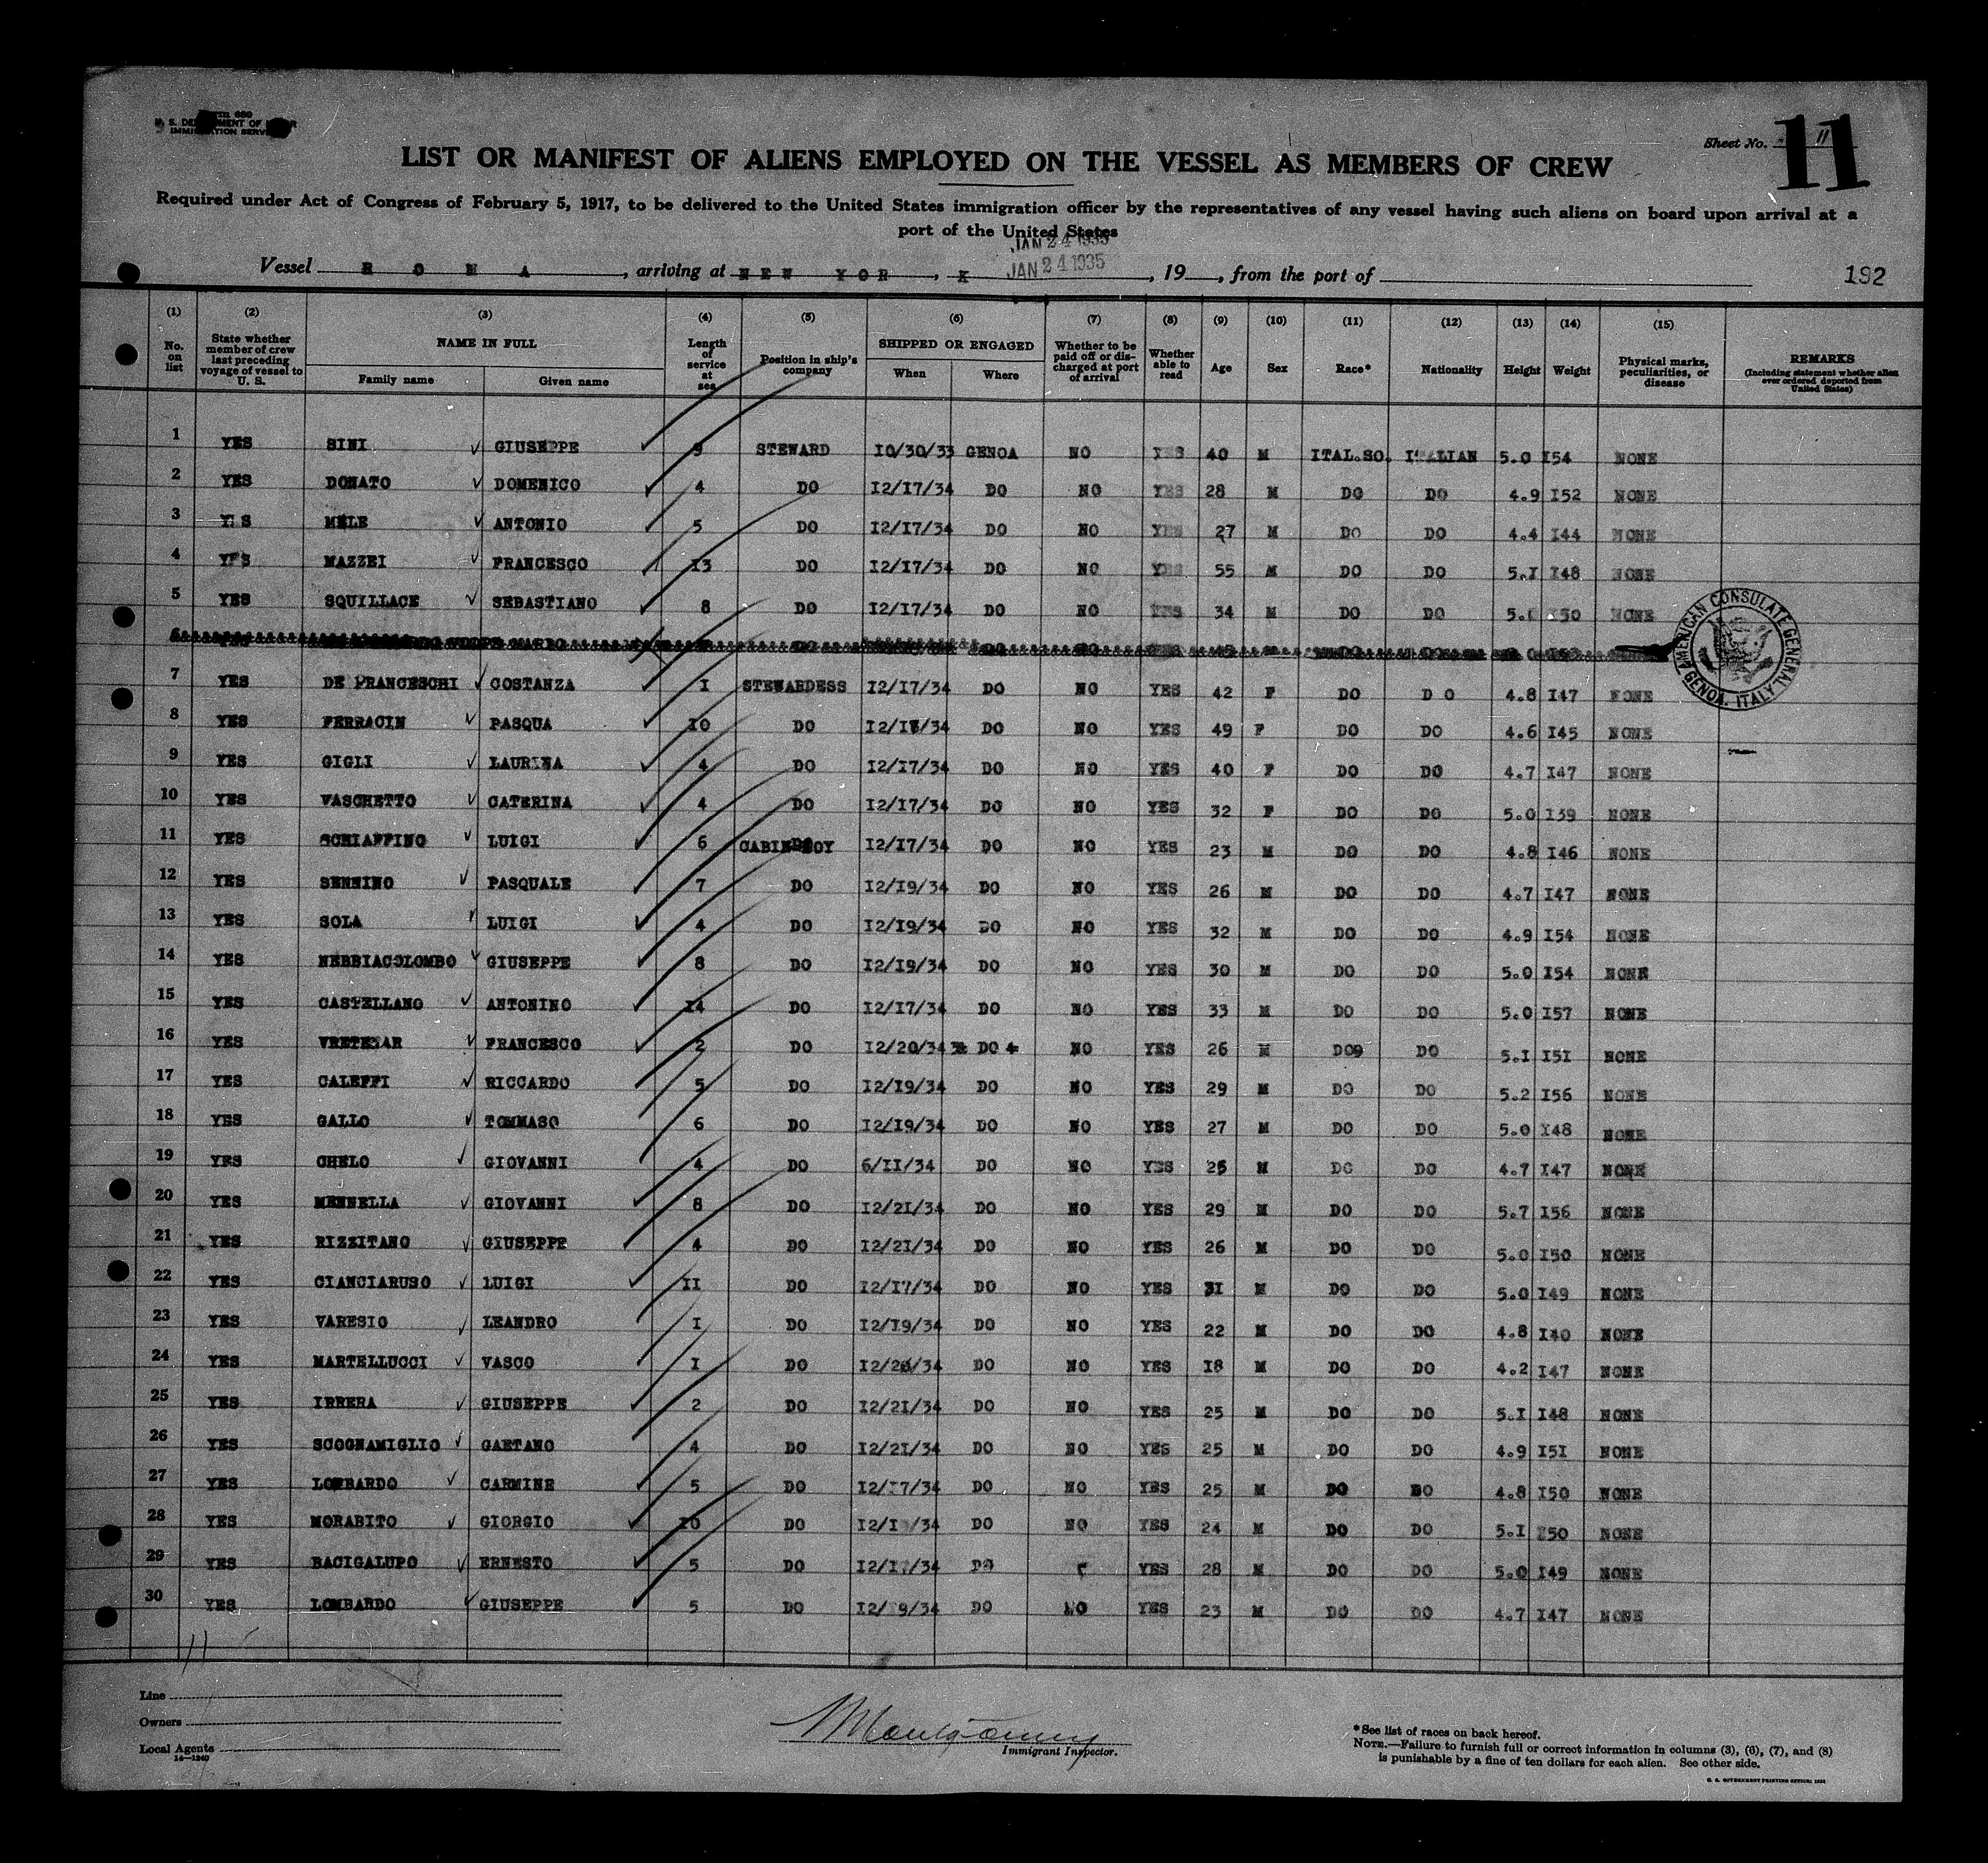 Form 680
U. S. DEPARTMENT OF LABOR
IMMIGRATION SERVICE
Sheet No. 11
11
LIST OR MANIFEST OF ALIENS EMPLOYED ON THE VESSEL AS MEMBERS OF CREW
Required under Act of Congress of February 5, 1917, to be delivered to the United States immigration officer by the representatives of any vessel having such aliens on board upon arrival at a
port of the United States
JAN 24 1935
Vessel R O M A, arriving at NEW YOR, K JAN 24 1935, 19, from the port of
192
(1) (2) (3) (4) (5) (6) (7) (8) (9) (10) (11) (12) (13) (14) (15)
No. on list State whether member of crew last preceding voyage of vessel to U. S. NAME IN FULL Family name Given name Length of service at sea Position in ship's company SHIPPED OR ENGAGED When Where Whether to be paid off or discharged at port of arrival Whether able to read Age Sex Race* Nationality Height Weight Physical marks, peculiarities, or disease REMARKS (Including statement whether alien ever ordered deported from United States)
1 YES SINI GIUSEPPE 9 STEWARD I0/30/33 GENOA NO YES 40 M ITAL.SO. ITALIAN 5.0 I54 NONE
2 YES DONATO DOMENICO 4 DO I2/I7/34 DO NO YES 28 M DO DO 4.9 I52 NONE
3 YES MELE ANTONIO 5 DO I2/I7/34 DO NO YES 27 M DO DO 4.4 I44 NONE
4 YES MAZZEI FRANCESCO I3 DO I2/I7/34 DO NO YES 55 M DO DO 5.I I48 NONE
5 YES SQUILLACE SEBASTIANO 8 DO I2/I7/34 DO NO YES 34 M DO DO 5. I50 NONE
6
AMERICAN CONSULATE GENERAL GENOA, ITALY
7 YES DE FRANCESCHI COSTANZA I STEWARDESS I2/I7/34 DO NO YES 42 F DO D O 4.8 I47 NONE
8 YES FERRACIN PASQUA I0 DO I2/I8/34 DO NO YES 49 F DO DO 4.6 I45 NONE
9 YES GIGLI LAURINA 4 DO I2/I7/34 DO NO YES 40 F DO DO 4.7 I47 NONE
10 YES VASCHETTO CATERINA 4 DO I2/I7/34 DO NO YES 32 F DO DO 5.0 I39 NONE
11 YES SCHIAFFINO LUIGI 6 CABIN BOY I2/I7/34 DO NO YES 23 M DO DO 4.8 I46 NONE
12 YES SENNINO PASQUALE 7 DO I2/I9/34 DO NO YES 26 M DO DO 4.7 I47 NONE
13 YES SOLA LUIGI 4 DO I2/I9/34 DO NO YES 32 M DO DO 4.9 I54 NONE
14 YES NEBBIACOLOMBO GIUSEPPE 8 DO I2/I9/34 DO NO YES 30 M DO DO 5.0 I54 NONE
15 YES CASTELLANO ANTONINO I4 DO I2/I7/34 DO NO YES 33 M DO DO 5.0 I57 NONE
16 YES VRETENAR FRANCESCO 2 DO I2/20/34 DO NO YES 26 M DO DO 5.I I5I NONE
17 YES CALEFFI RICCARDO 5 DO I2/I9/34 DO NO YES 29 M DO DO 5.2 I56 NONE
18 YES GALLO TOMMASO 6 DO I2/I9/34 DO NO YES 27 M DO DO 5.0 I48 NONE
19 YES CHELO GIOVANNI 4 DO 6/II/34 DO NO YES 25 M DO DO 4.7 I47 NONE
20 YES MENNELLA GIOVANNI 8 DO I2/2I/34 DO NO YES 29 M DO DO 5.7 I56 NONE
21 YES RIZZITANO GIUSEPPE 4 DO I2/2I/34 DO NO YES 26 M DO DO 5.0 I50 NONE
22 YES CIANCIARUSO LUIGI II DO I2/I7/34 DO NO YES 3I M DO DO 5.0 I49 NONE
23 YES VARESIO LEANDRO I DO I2/I9/34 DO NO YES 22 M DO DO 4.8 I40 NONE
24 YES MARTELLUCCI VASCO I DO I2/20/34 DO NO YES I8 M DO DO 4.2 I47 NONE
25 YES IRRERA GIUSEPPE 2 DO I2/2I/34 DO NO YES 25 M DO DO 5.I I48 NONE
26 YES SCOGNAMIGLIO GAETANO 4 DO I2/2I/34 DO NO YES 25 M DO DO 4.9 I5I NONE
27 YES LOMBARDO CARMINE 5 DO I2/I7/34 DO NO YES 25 M DO DO 4.8 I50 NONE
28 YES MORABITO GIORGIO I0 DO I2/I /34 DO NO YES 24 M DO DO 5.I I50 NONE
29 YES BACIGALUPO ERNESTO 5 DO I2/I7/34 DO YES 28 M DO DO 5.0 I49 NONE
30 YES LOMBARDO GIUSEPPE 5 DO I2/I9/34 DO NO YES 23 M DO DO 4.7 I47 NONE
11
Line
Owners
Local Agents
14—1240
Montgomery
Immigrant Inspector.
*See list of races on back hereof.
NOTE.—Failure to furnish full or correct information in columns (3), (6), (7), and (8)
is punishable by a fine of ten dollars for each alien. See other side.
U. S. GOVERNMENT PRINTING OFFICE: 1932